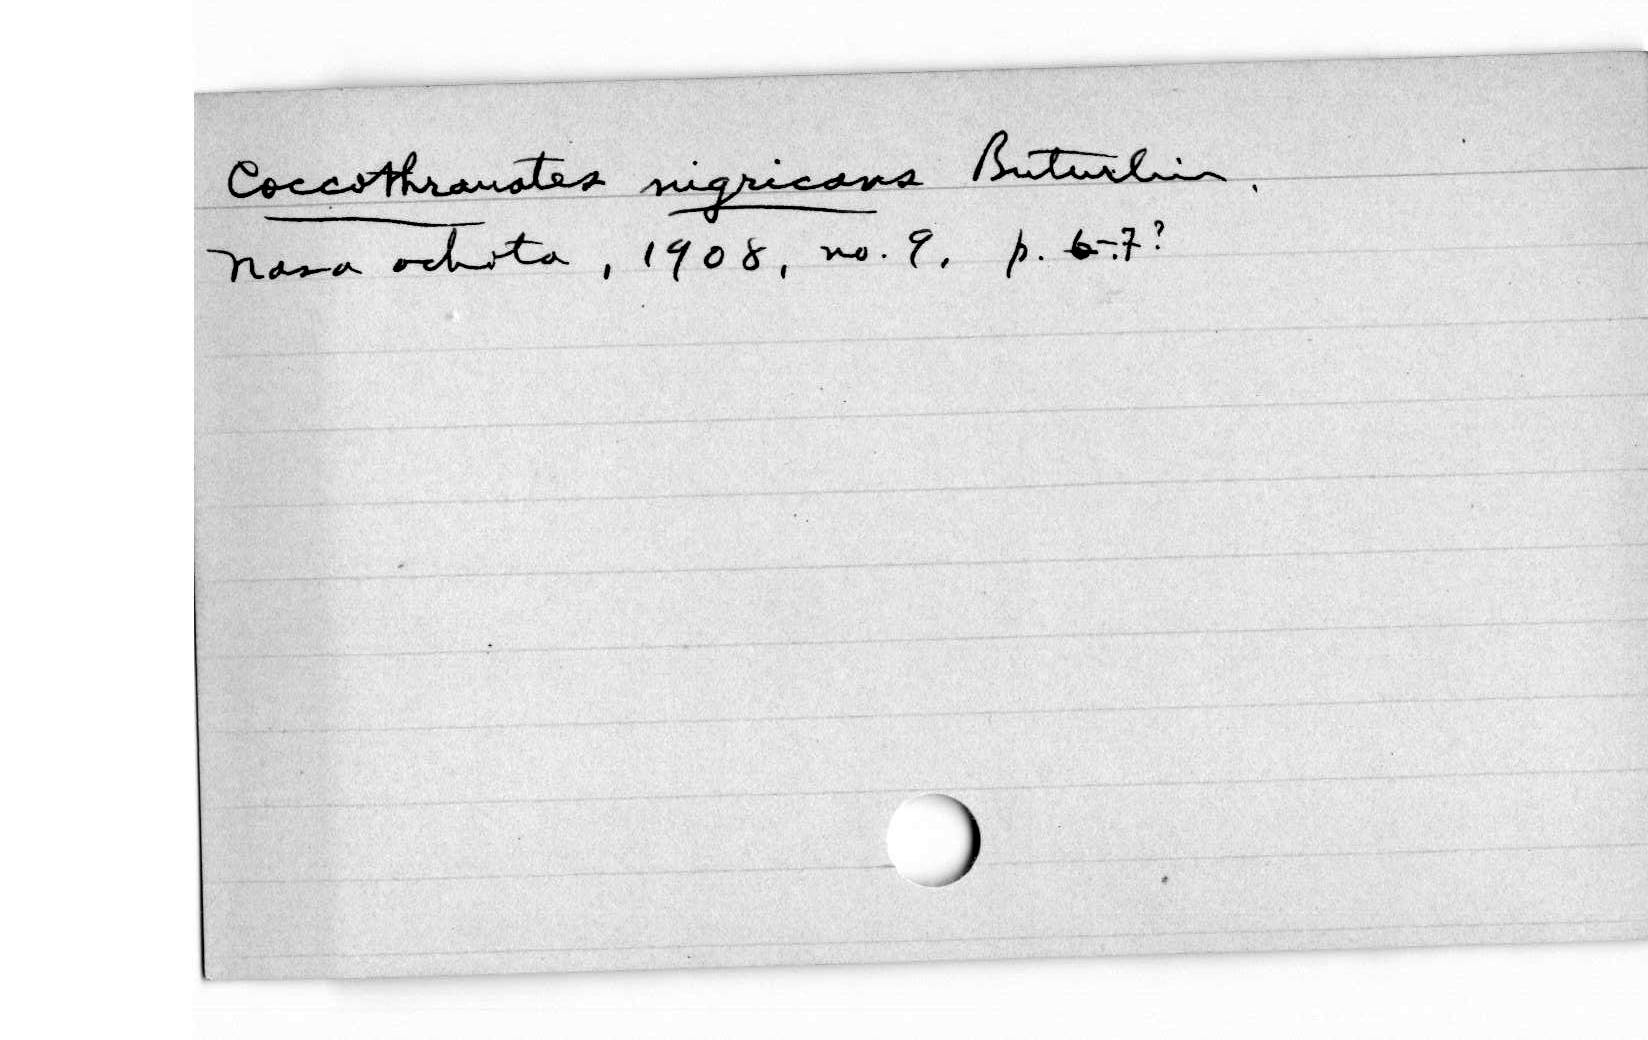 Coccothraustes nigricans Buturlin.
Nasa ochota, 1908, no. 9, p. 6-7?